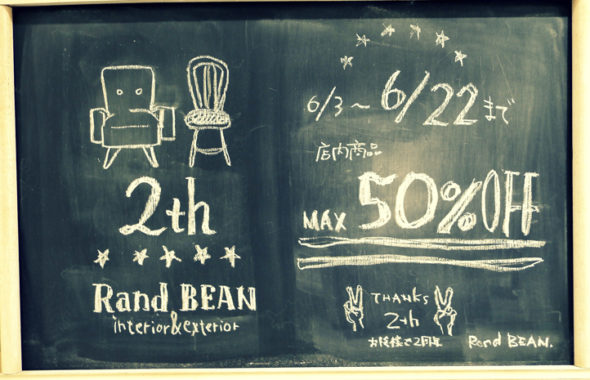 2th
Rand BEAN
interior&exterior
6/3~6/22まで
店内商品
MAX 50%OFF
THANKS
2th
お陰様で2周年
Rand BEAN.